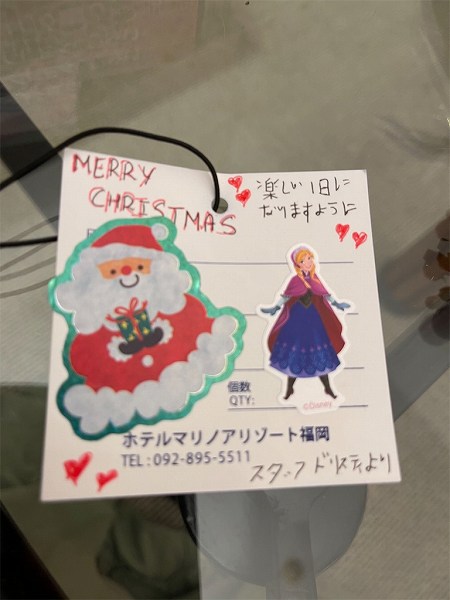 MERRY
CHRISTMAS
楽しい1日に
なりますように
個数
QTY:
©Disney
ホテルマリノアリゾート福岡
TEL : 092-895-5511
スタッフ ドリスティより